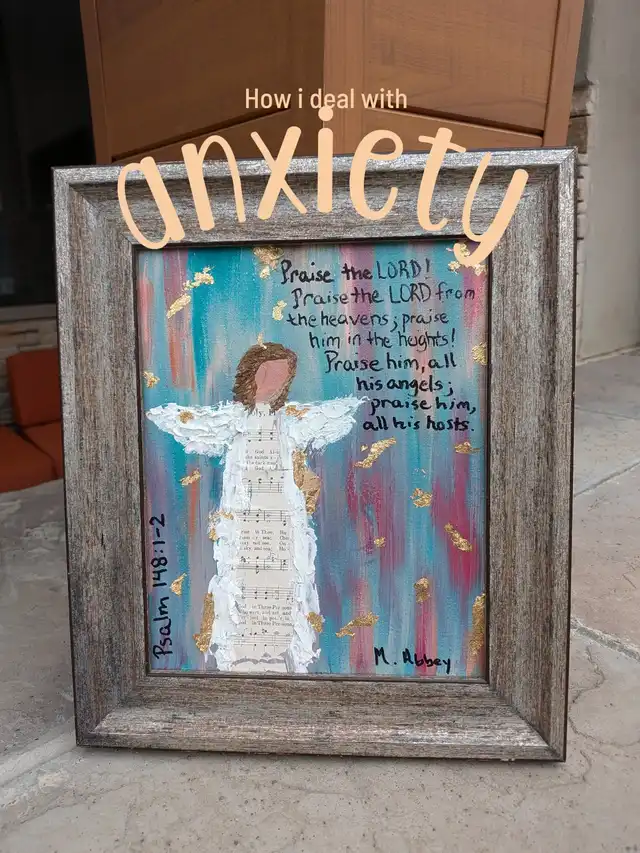 How i deal with
anxiety
Praise the LORD!
Praise the LORD from
the heavens; praise
him in the heights!
Praise him, all
his angels;
praise him,
all his hosts.
Psalm 148:1-2
M. Abbey